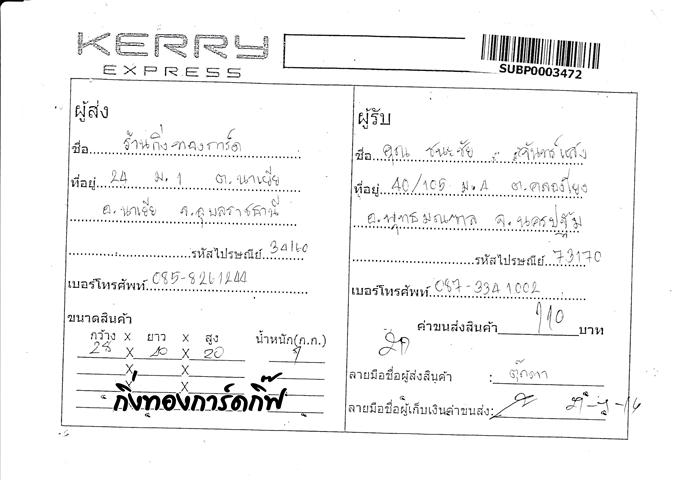 KERRY
EXPRESS
SUBP0003472
ผู้ส่ง
ชื่อ ร้านกิ่งทองการ์ด
ที่อยู่ 24 ม.1 ต.นาเยีย
อ.นาเยีย จ.อุบลราชธานี
รหัสไปรษณีย์ 34160
เบอร์โทรศัพท์ 085-8261244
ขนาดสินค้า
กว้าง X ยาว X สูง น้ำหนัก(ก.ก.)
X X 20
X X
X X
กิ่งทองการ์ดกิ๊ฟ
ผู้รับ
ชื่อ คุณ ชนะชัย จันทร์เส่ง
ที่อยู่ 40/105 ม.4 ต.คลองโยง
อ.พุทธมณฑล จ.นครปฐม
รหัสไปรษณีย์ 73170
เบอร์โทรศัพท์ 087-3341002
ค่าขนส่งสินค้า 110 บาท
ลายมือชื่อผู้ส่งสินค้า : ตุ๊กตา
ลายมือชื่อผู้เก็บเงินค่าขนส่ง: